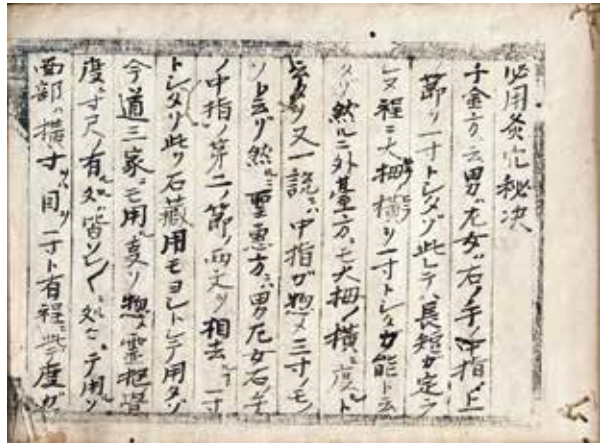 必用灸穴秘決
千金方ニ云男ハ左女ハ右ノ手ノ中指ノ上
節ヲ一寸トシタゾ此レテハ長短カ定ラ
ヌ程ニ大拇ノ横ヲ一寸トシタカ能ト云
タソ然ルニ外臺方ニモ大拇ノ横ニ度レト
云タソ又一説ニハ中指ガ惣メ三寸ノモノ
ソト云ソ然ルニ聖惠方ニハ男左女右ノ手
ノ中指ノ第二ノ節ノ両文ノ相去ヲ一寸
トシタソ此ヲ石藏用モヨシトシテ用タゾ
今道三家ニモ用ル麦ソ惣メ霊枢
度ニ寸尺ノ有ル処ハ皆ソレ〱ノ処ニテ用ルソ
面部ノ横寸ハ目ヲ一寸ト有程ニ此デ度ガ